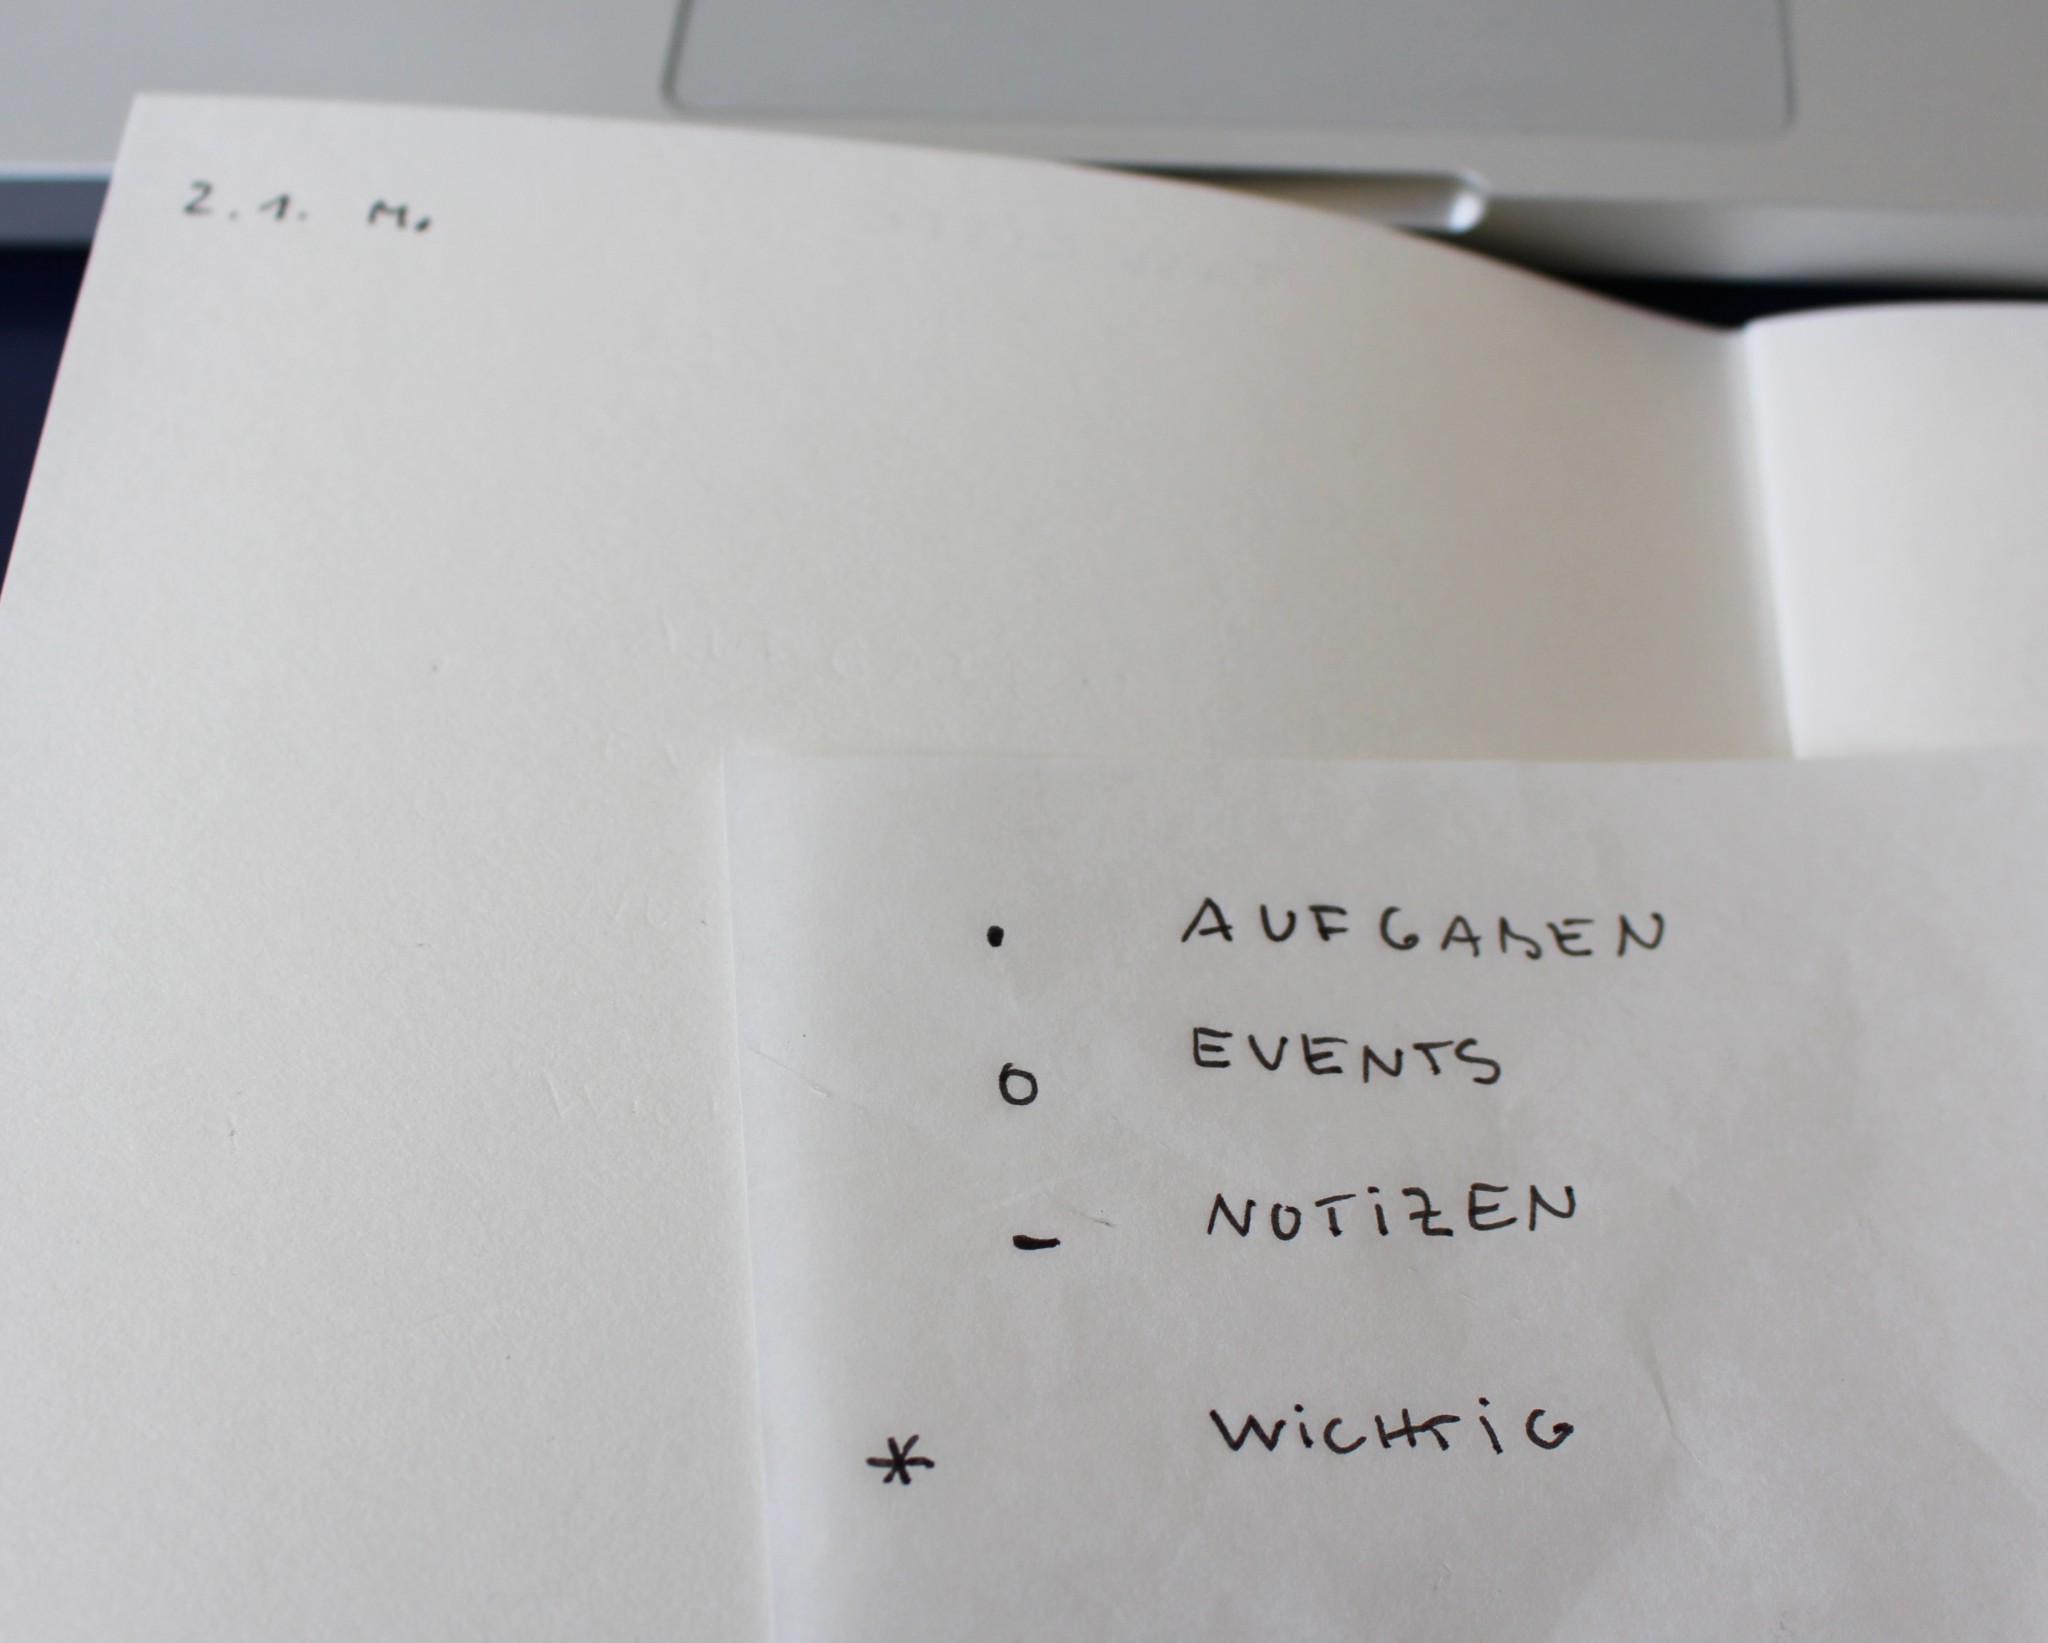 2.1. M.
• AUFGABEN
o EVENTS
– NOTiZEN
* WiCHTiG